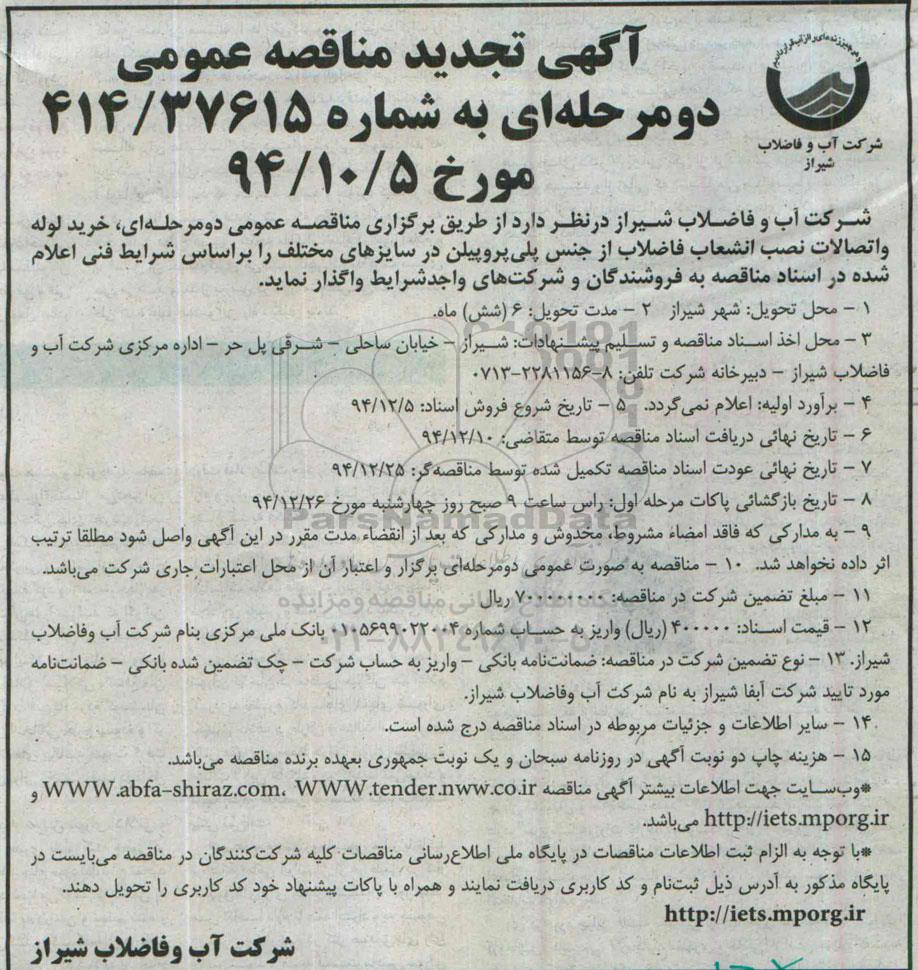 آگهی تجدید مناقصه عمومی
دومرحله‌ای به شماره ۴۱۴/۳۷۶۱۵
مورخ ۹۴/۱۰/۵
شرکت آب و فاضلاب
شیراز
شرکت آب و فاضلاب شیراز درنظر دارد از طریق برگزاری مناقصه عمومی دومرحله‌ای، خرید لوله
واتصالات نصب انشعاب فاضلاب از جنس پلی‌پروپیلن در سایزهای مختلف را براساس شرایط فنی اعلام
شده در اسناد مناقصه به فروشندگان و شرکت‌های واجدشرایط واگذار نماید.
۱ – محل تحویل: شهر شیراز ۲ – مدت تحویل: ۶ (شش) ماه.
۳ – محل اخذ اسناد مناقصه و تسلیم پیشنهادات: شیراز – خیابان ساحلی – شرقی پل حر – اداره مرکزی شرکت آب و
فاضلاب شیراز – دبیرخانه شرکت تلفن: ۸–۲۲۸۱۱۵۶–۰۷۱۳
۴ – برآورد اولیه: اعلام نمی‌گردد. ۵ – تاریخ شروع فروش اسناد: ۹۴/۱۲/۵
۶ – تاریخ نهائی دریافت اسناد مناقصه توسط متقاضی: ۹۴/۱۲/۱۰
۷ – تاریخ نهائی عودت اسناد مناقصه تکمیل شده توسط مناقصه‌گر: ۹۴/۱۲/۲۵
۸ – تاریخ بازگشائی پاکات مرحله اول: راس ساعت ۹ صبح روز چهارشنبه مورخ ۹۴/۱۲/۲۶
ParsNamadData
۹ – به مدارکی که فاقد امضاء مشروط، مخدوش و مدارکی که بعد از انقضاء مدت مقرر در این آگهی واصل شود مطلقا ترتیب
اثر داده نخواهد شد. ۱۰ – مناقصه به صورت عمومی دومرحله‌ای برگزار و اعتبار آن از محل اعتبارات جاری شرکت می‌باشد.
۱۱ – مبلغ تضمین شرکت در مناقصه: ۷۰۰۰۰۰۰۰۰ ریال
۱۲ – قیمت اسناد: ۴۰۰۰۰۰ (ریال) واریز به حساب شماره ۰۱۰۵۶۹۹۰۲۲۰۰۴ بانک ملی مرکزی بنام شرکت آب وفاضلاب
شیراز. ۱۳ – نوع تضمین شرکت در مناقصه: ضمانت‌نامه بانکی – واریز به حساب شرکت – چک تضمین شده بانکی – ضمانت‌نامه
مورد تایید شرکت آبفا شیراز به نام شرکت آب وفاضلاب شیراز.
۱۴ – سایر اطلاعات و جزئیات مربوطه در اسناد مناقصه درج شده است.
۱۵ – هزینه چاپ دو نوبت آگهی در روزنامه سبحان و یک نوبت جمهوری بعهده برنده مناقصه می‌باشد.
*وب‌سایت جهت اطلاعات بیشتر آگهی مناقصه WWW.abfa-shiraz.com، WWW.tender.nww.co.ir و
http://iets.mporg.ir می‌باشد.
*با توجه به الزام ثبت اطلاعات مناقصات در پایگاه ملی اطلاع‌رسانی مناقصات کلیه شرکت‌کنندگان در مناقصه می‌بایست در
پایگاه مذکور به آدرس ذیل ثبت‌نام و کد کاربری دریافت نمایند و همراه با پاکات پیشنهاد خود کد کاربری را تحویل دهند.
http://iets.mporg.ir
شرکت آب وفاضلاب شیراز